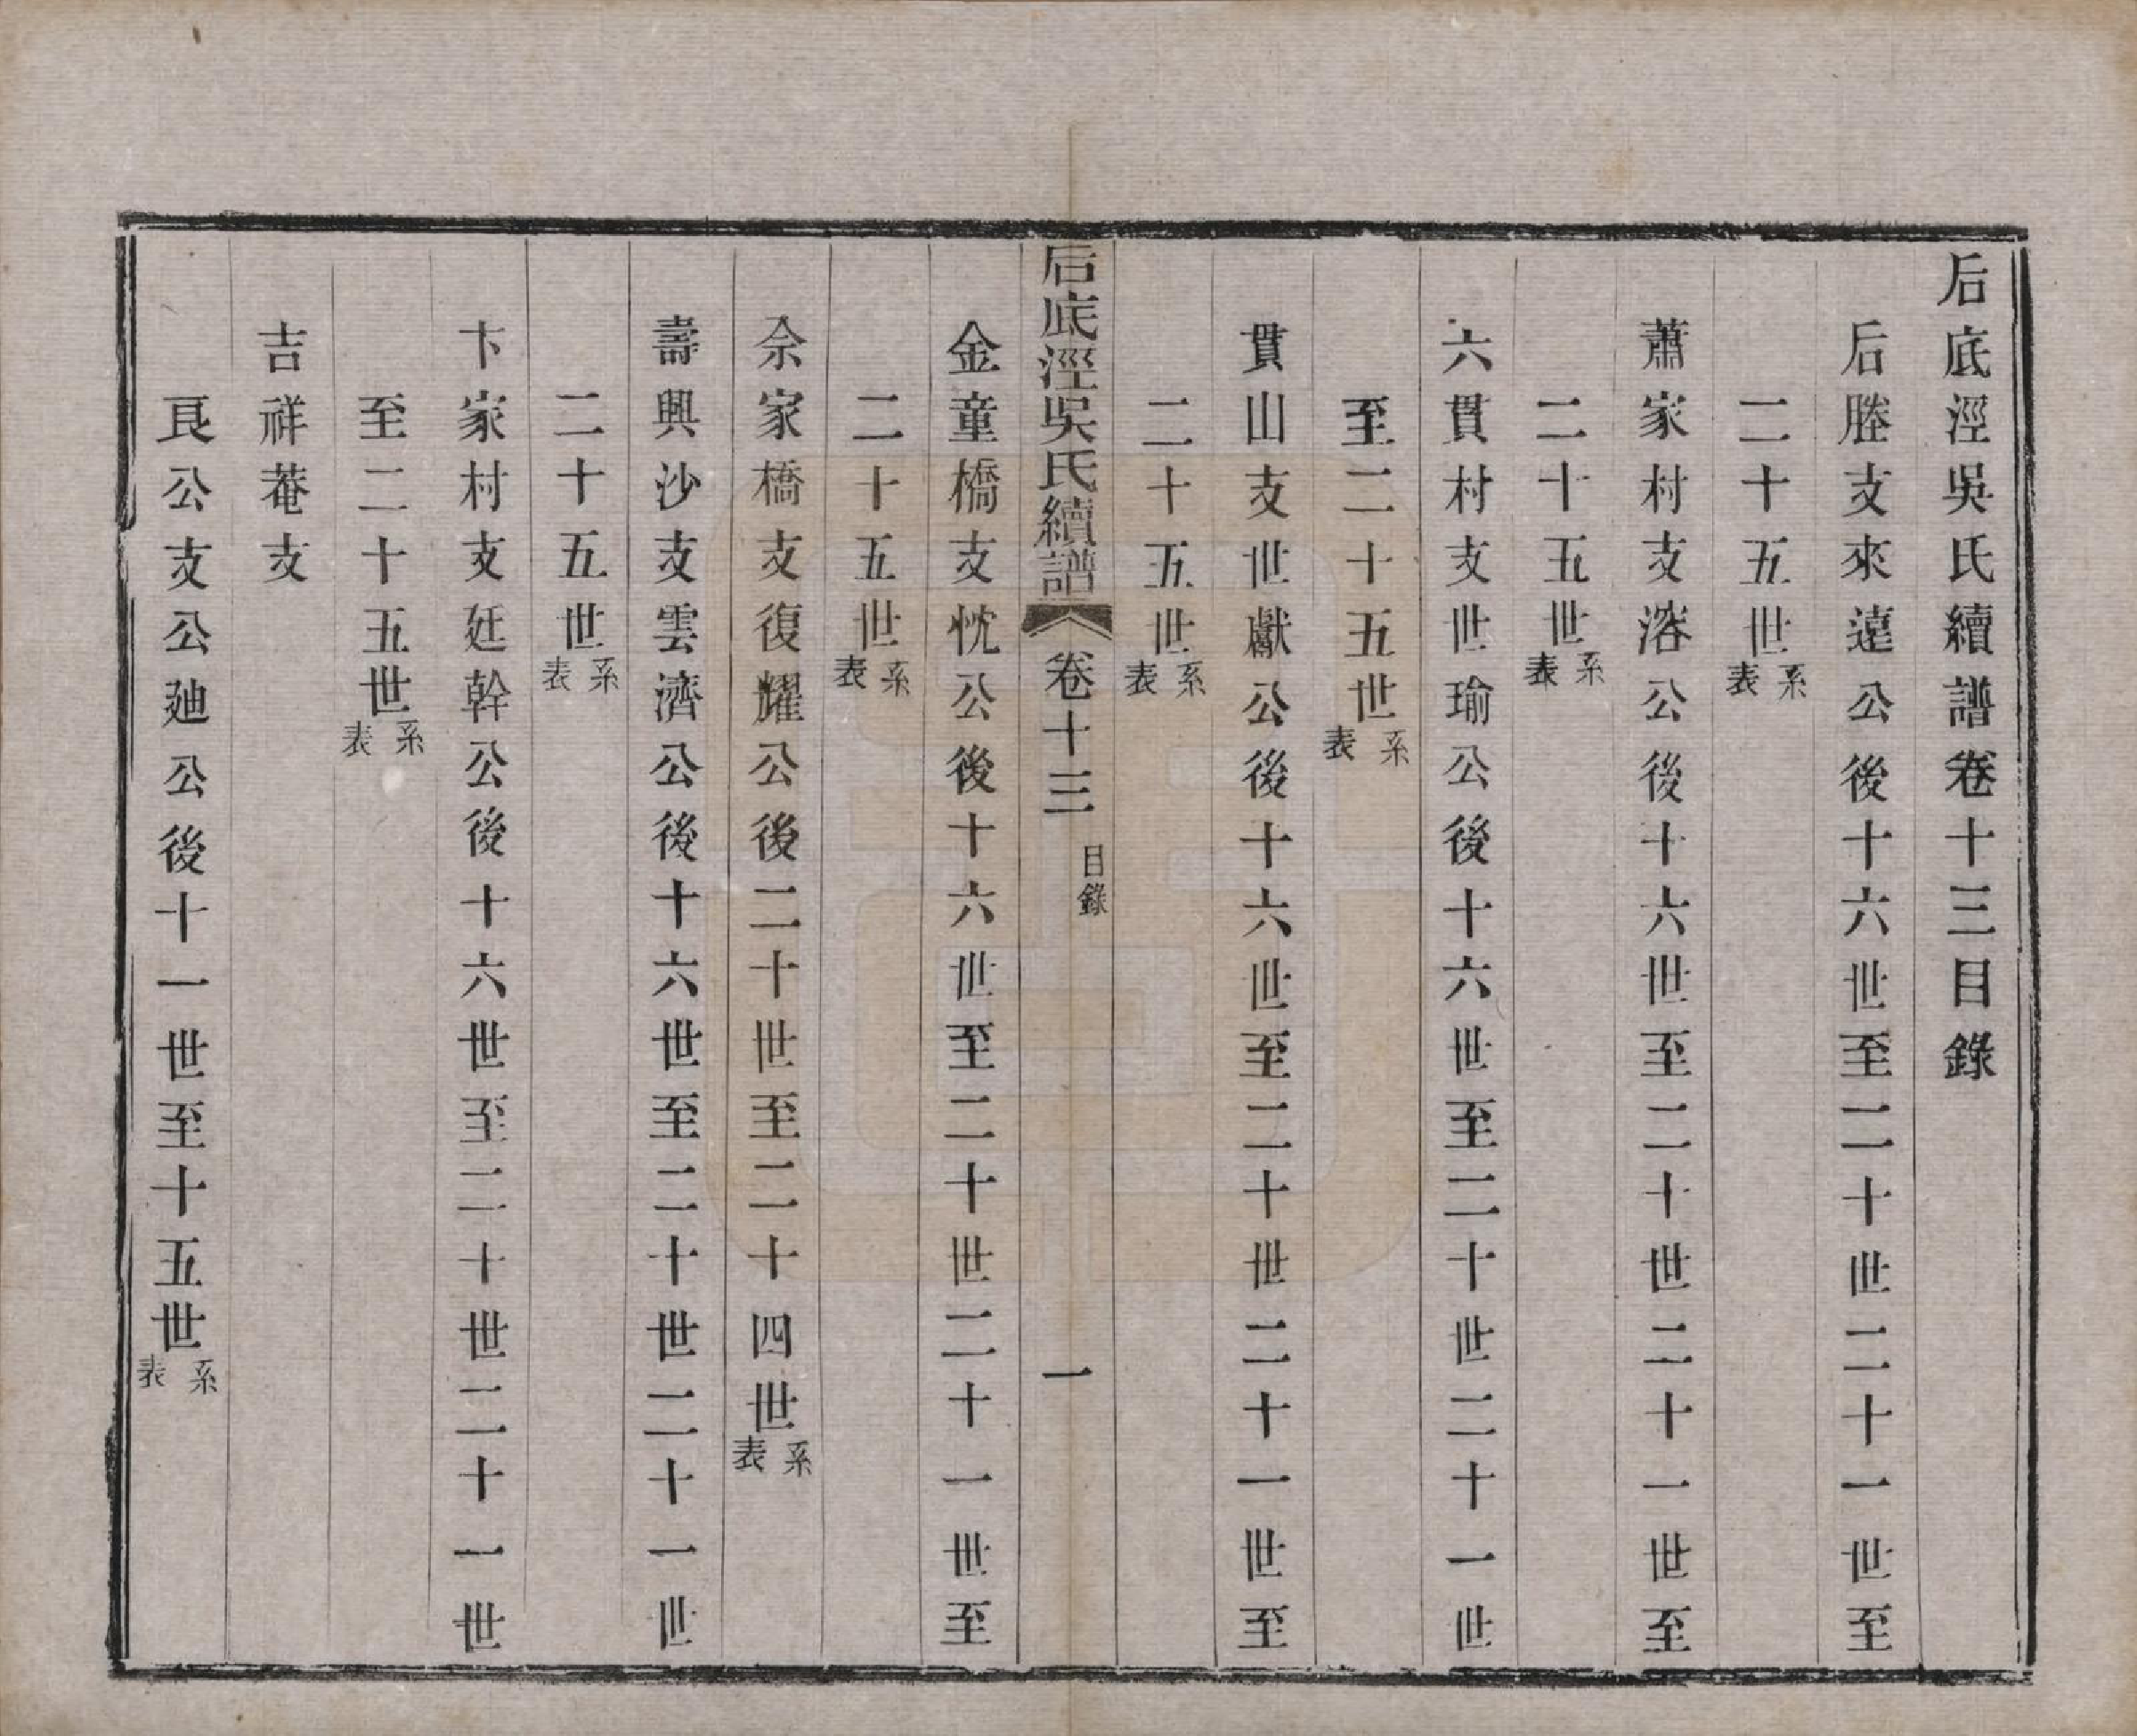 后底涇吳氏續譜卷十三目錄
后塍支來遠公後十六世至二十世二十一世至
二十五世系表
蕭家村支溶公後十六世至二十世二十一世至
二十五世系表
六貫村支世瑜公後十六世至二十世二十一世
至二十五世系表
貫山支世獻公後十六世至二十世二十一世至
二十五世系表
后底涇吳氏續譜 卷十三 目錄 一
金童橋支忱公後十六世至二十世二十一世至
二十五世系表
佘家橋支復耀公後二十世至二十四世系表
壽興沙支雲濟公後十六世至二十世二十一世
二十五世系表
卞家村支廷幹公後十六世至二十世二十一世
至二十五世系表
吉祥菴支
良公支公廸公後十一世至十五世系表